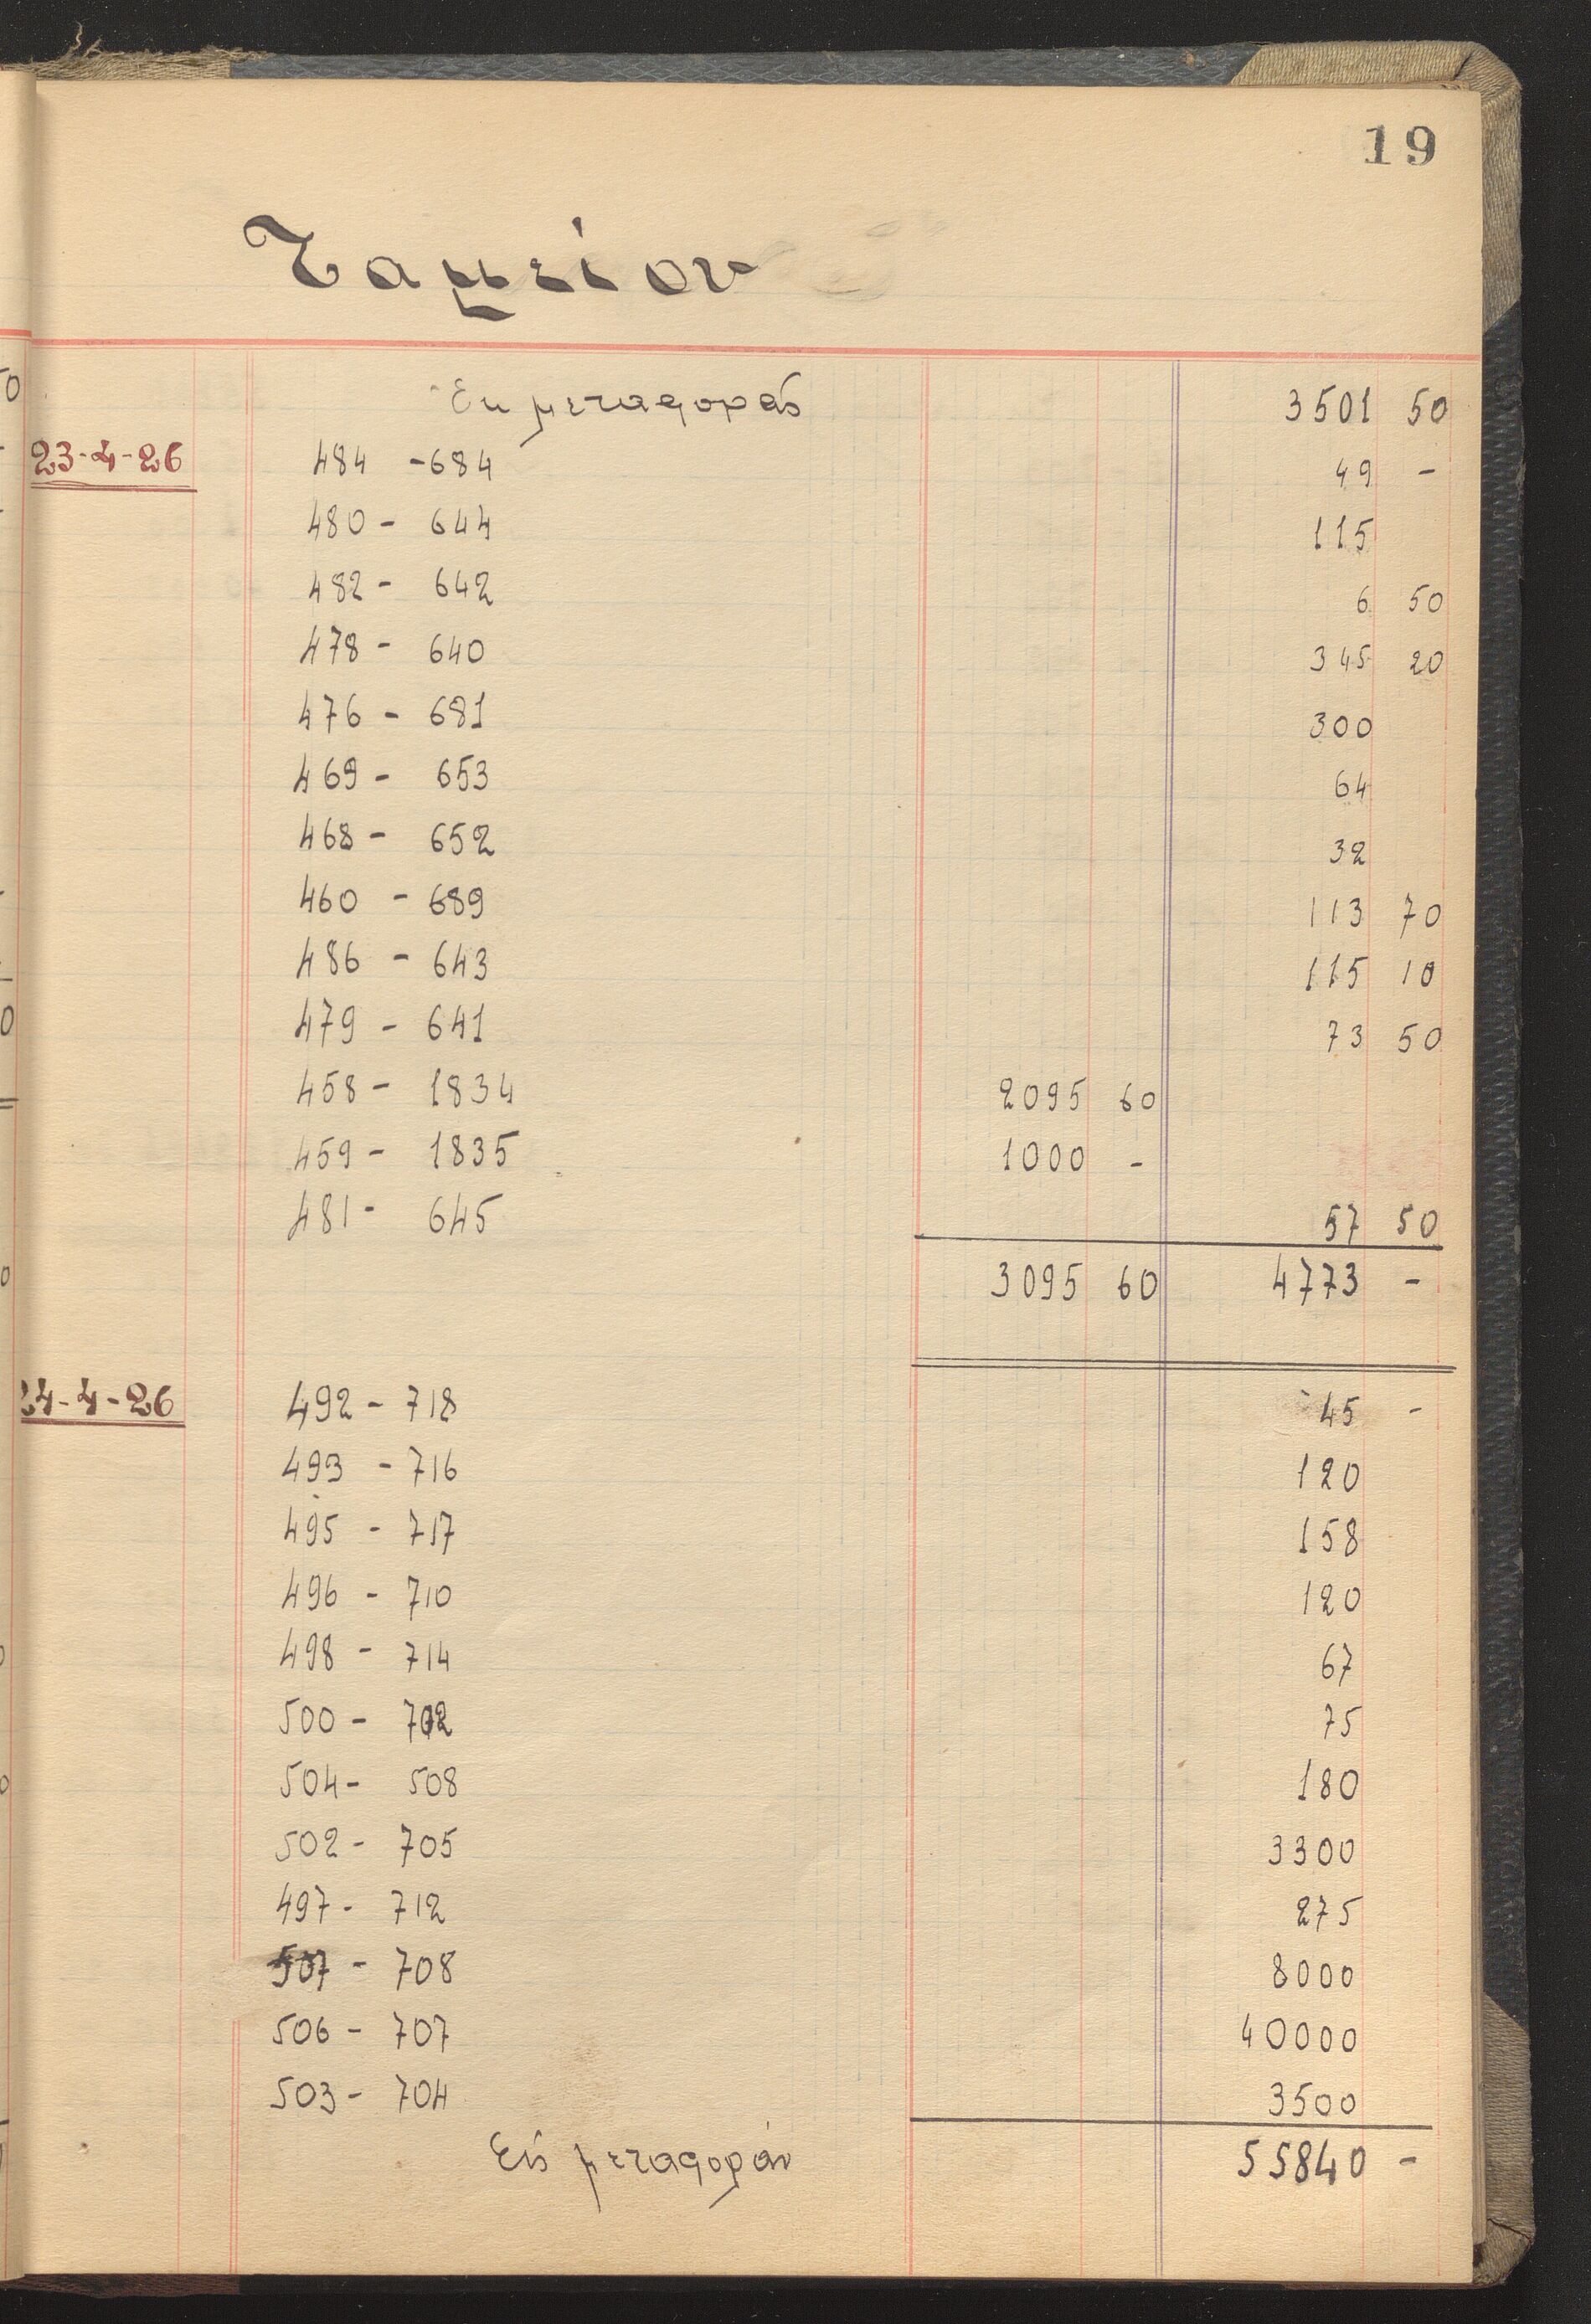 19
Ταμείον
Εκ μεταφοράς 3501 50
23-4-26 484 - 684 49 -
480 - 644 115
482 - 642 6 50
478 - 640 345 20
476 - 681 300
469 - 653 64
468 - 652 32
460 - 689 113 70
486 - 643 115 10
479 - 641 73 50
458 - 1834 2095 60
459 - 1835 1000 -
481 - 645 57 50
3095 60 4773 -
24-4-26 492 - 718 45 -
493 - 716 120
495 - 717 158
496 - 710 120
498 - 714 67
500 - 75
504 - 508 180
502 - 705 3300
497 - 712 275
507 - 708 8000
506 - 707 40000
503 - 704 3500
Εις μεταφοράν 55840 -